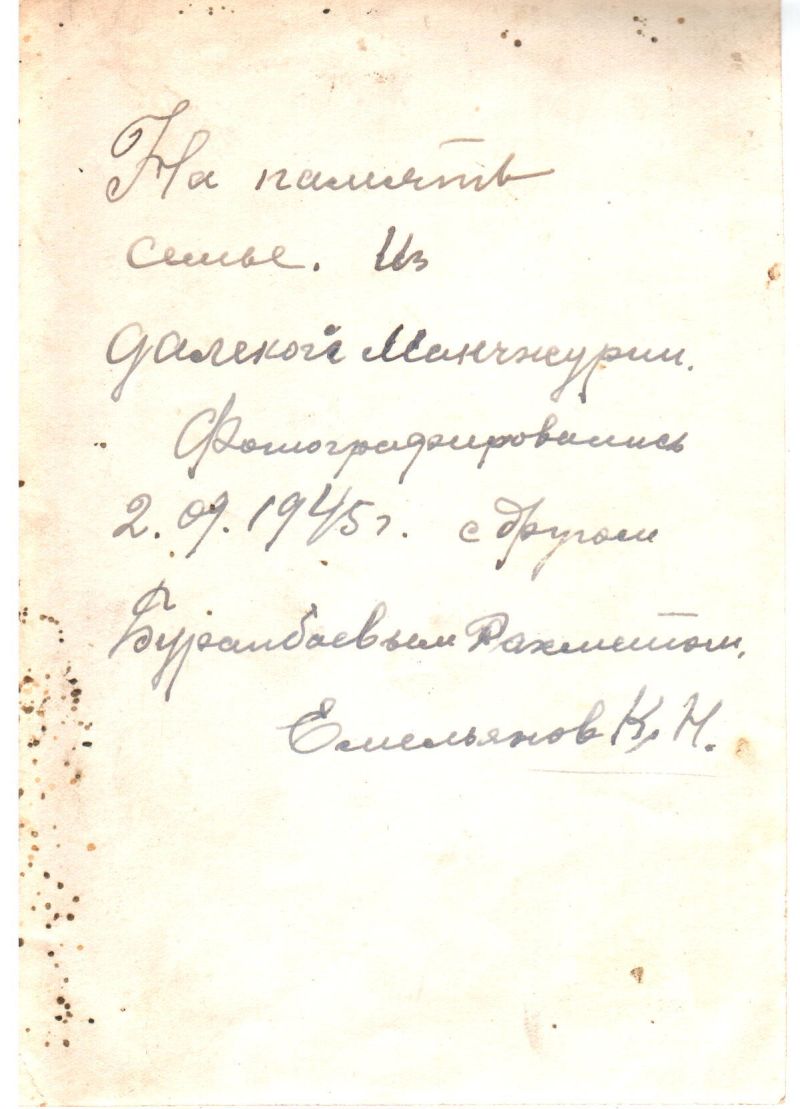 На память
семье. Из
далекой Манчжурии.
Фотографировались
2.09.1945г. с другом
Буранбаевым Рахметом,
Емельянов К.Н.